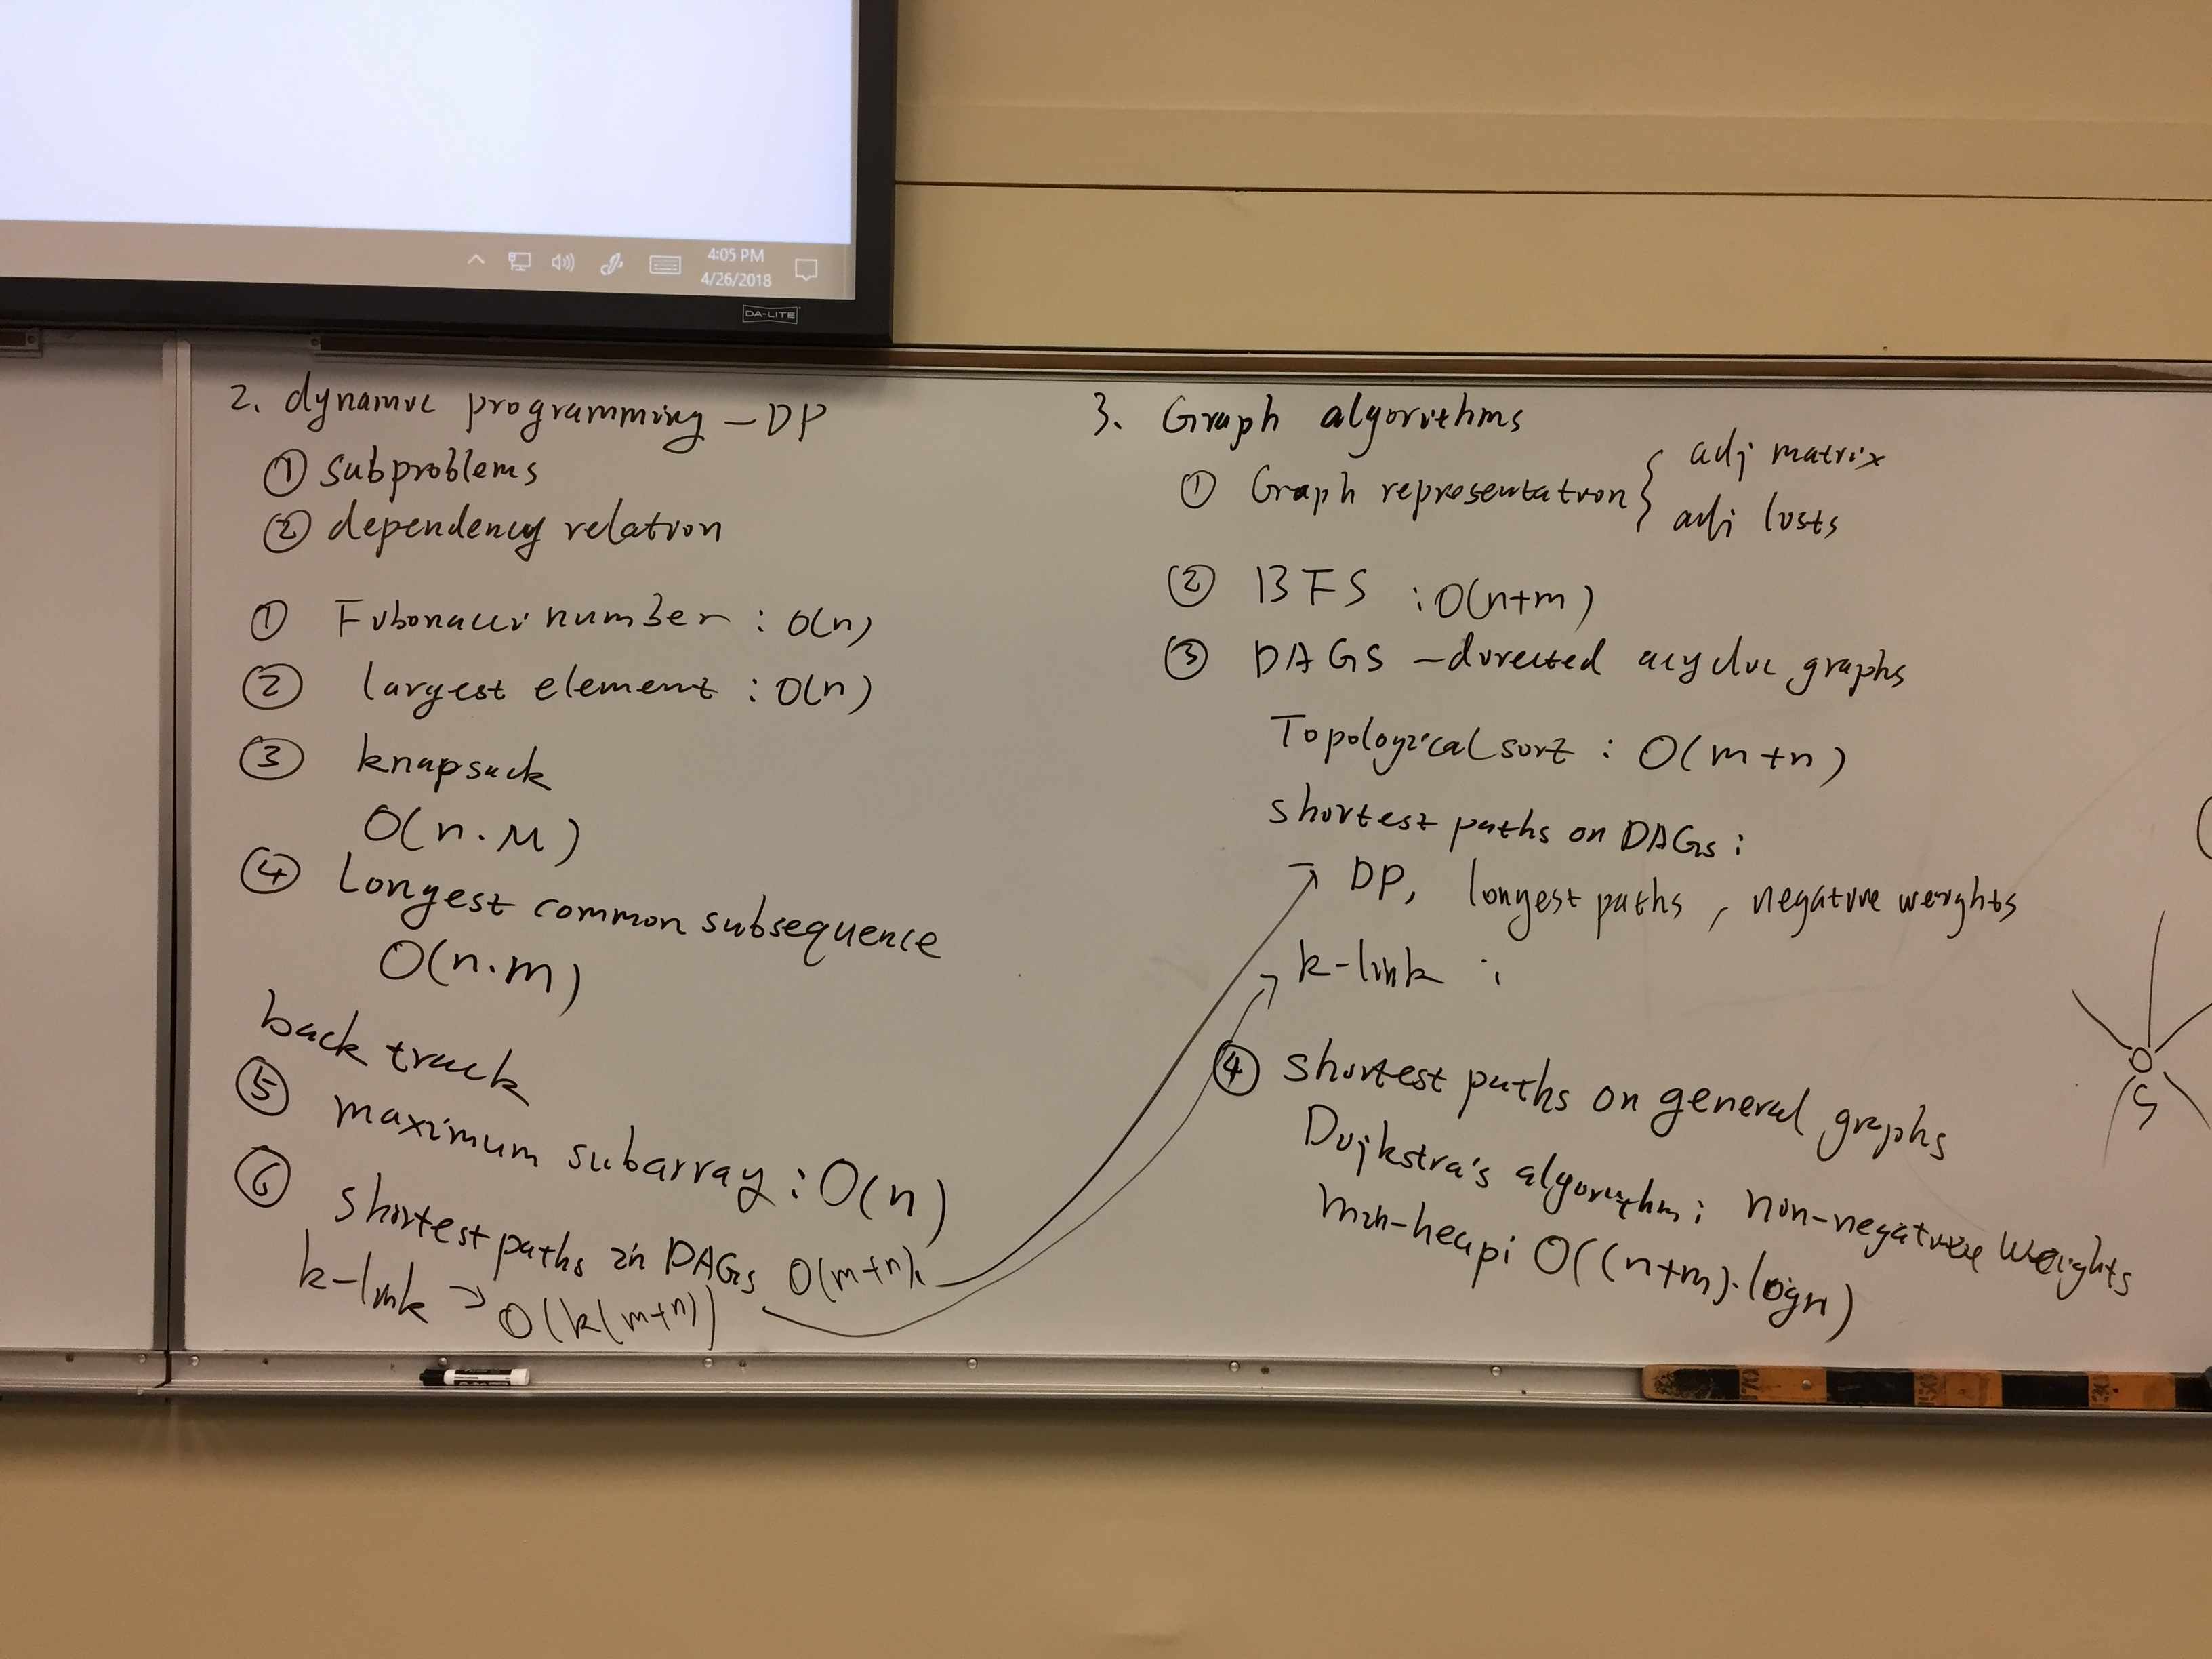 4:05 PM
4/26/2018
DA-LITE
2. dynamic programming - DP
① subproblems
② dependency relation
① Fibonacci number : O(n)
② largest element : O(n)
③ knapsack
O(n·M)
④ Longest common subsequence
O(n·m)
back track
⑤ maximum subarray : O(n)
⑥ shortest paths in DAGs O(m+n)
k-link → O(k(m+n))
3. Graph algorithms
① Graph representation { adj matrix
adj lists
② BFS : O(n+m)
③ DAGS - directed acyclic graphs
Topological sort : O(m+n)
shortest paths on DAGs :
DP, longest paths, negative weights
k-link :
④ shortest paths on general graphs
Dijkstra's algorithm: non-negative weights
min-heap: O((n+m)·logn)
S